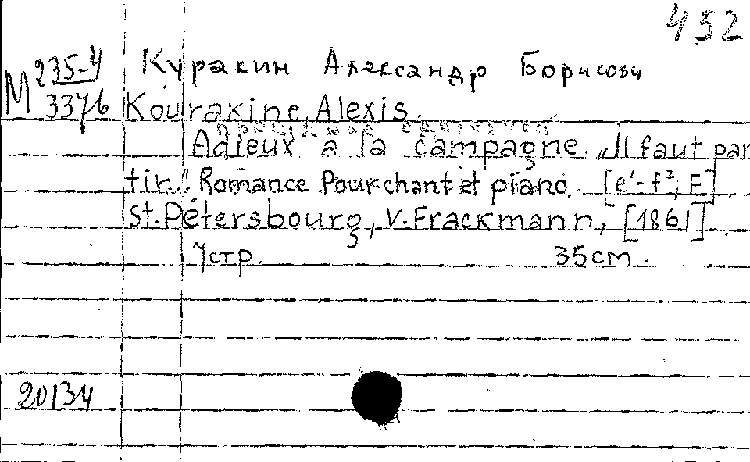 452
М 235-4
3376
Куракин Александр Борисови
Kourakine, Alexis.
Adieux à la campagne „Il faut par
tir". Romance Pour chant et piano. [e'-f², F]
St. Pétersbourg, V. Frackmann, [1861]
7стр. 35см.
20134